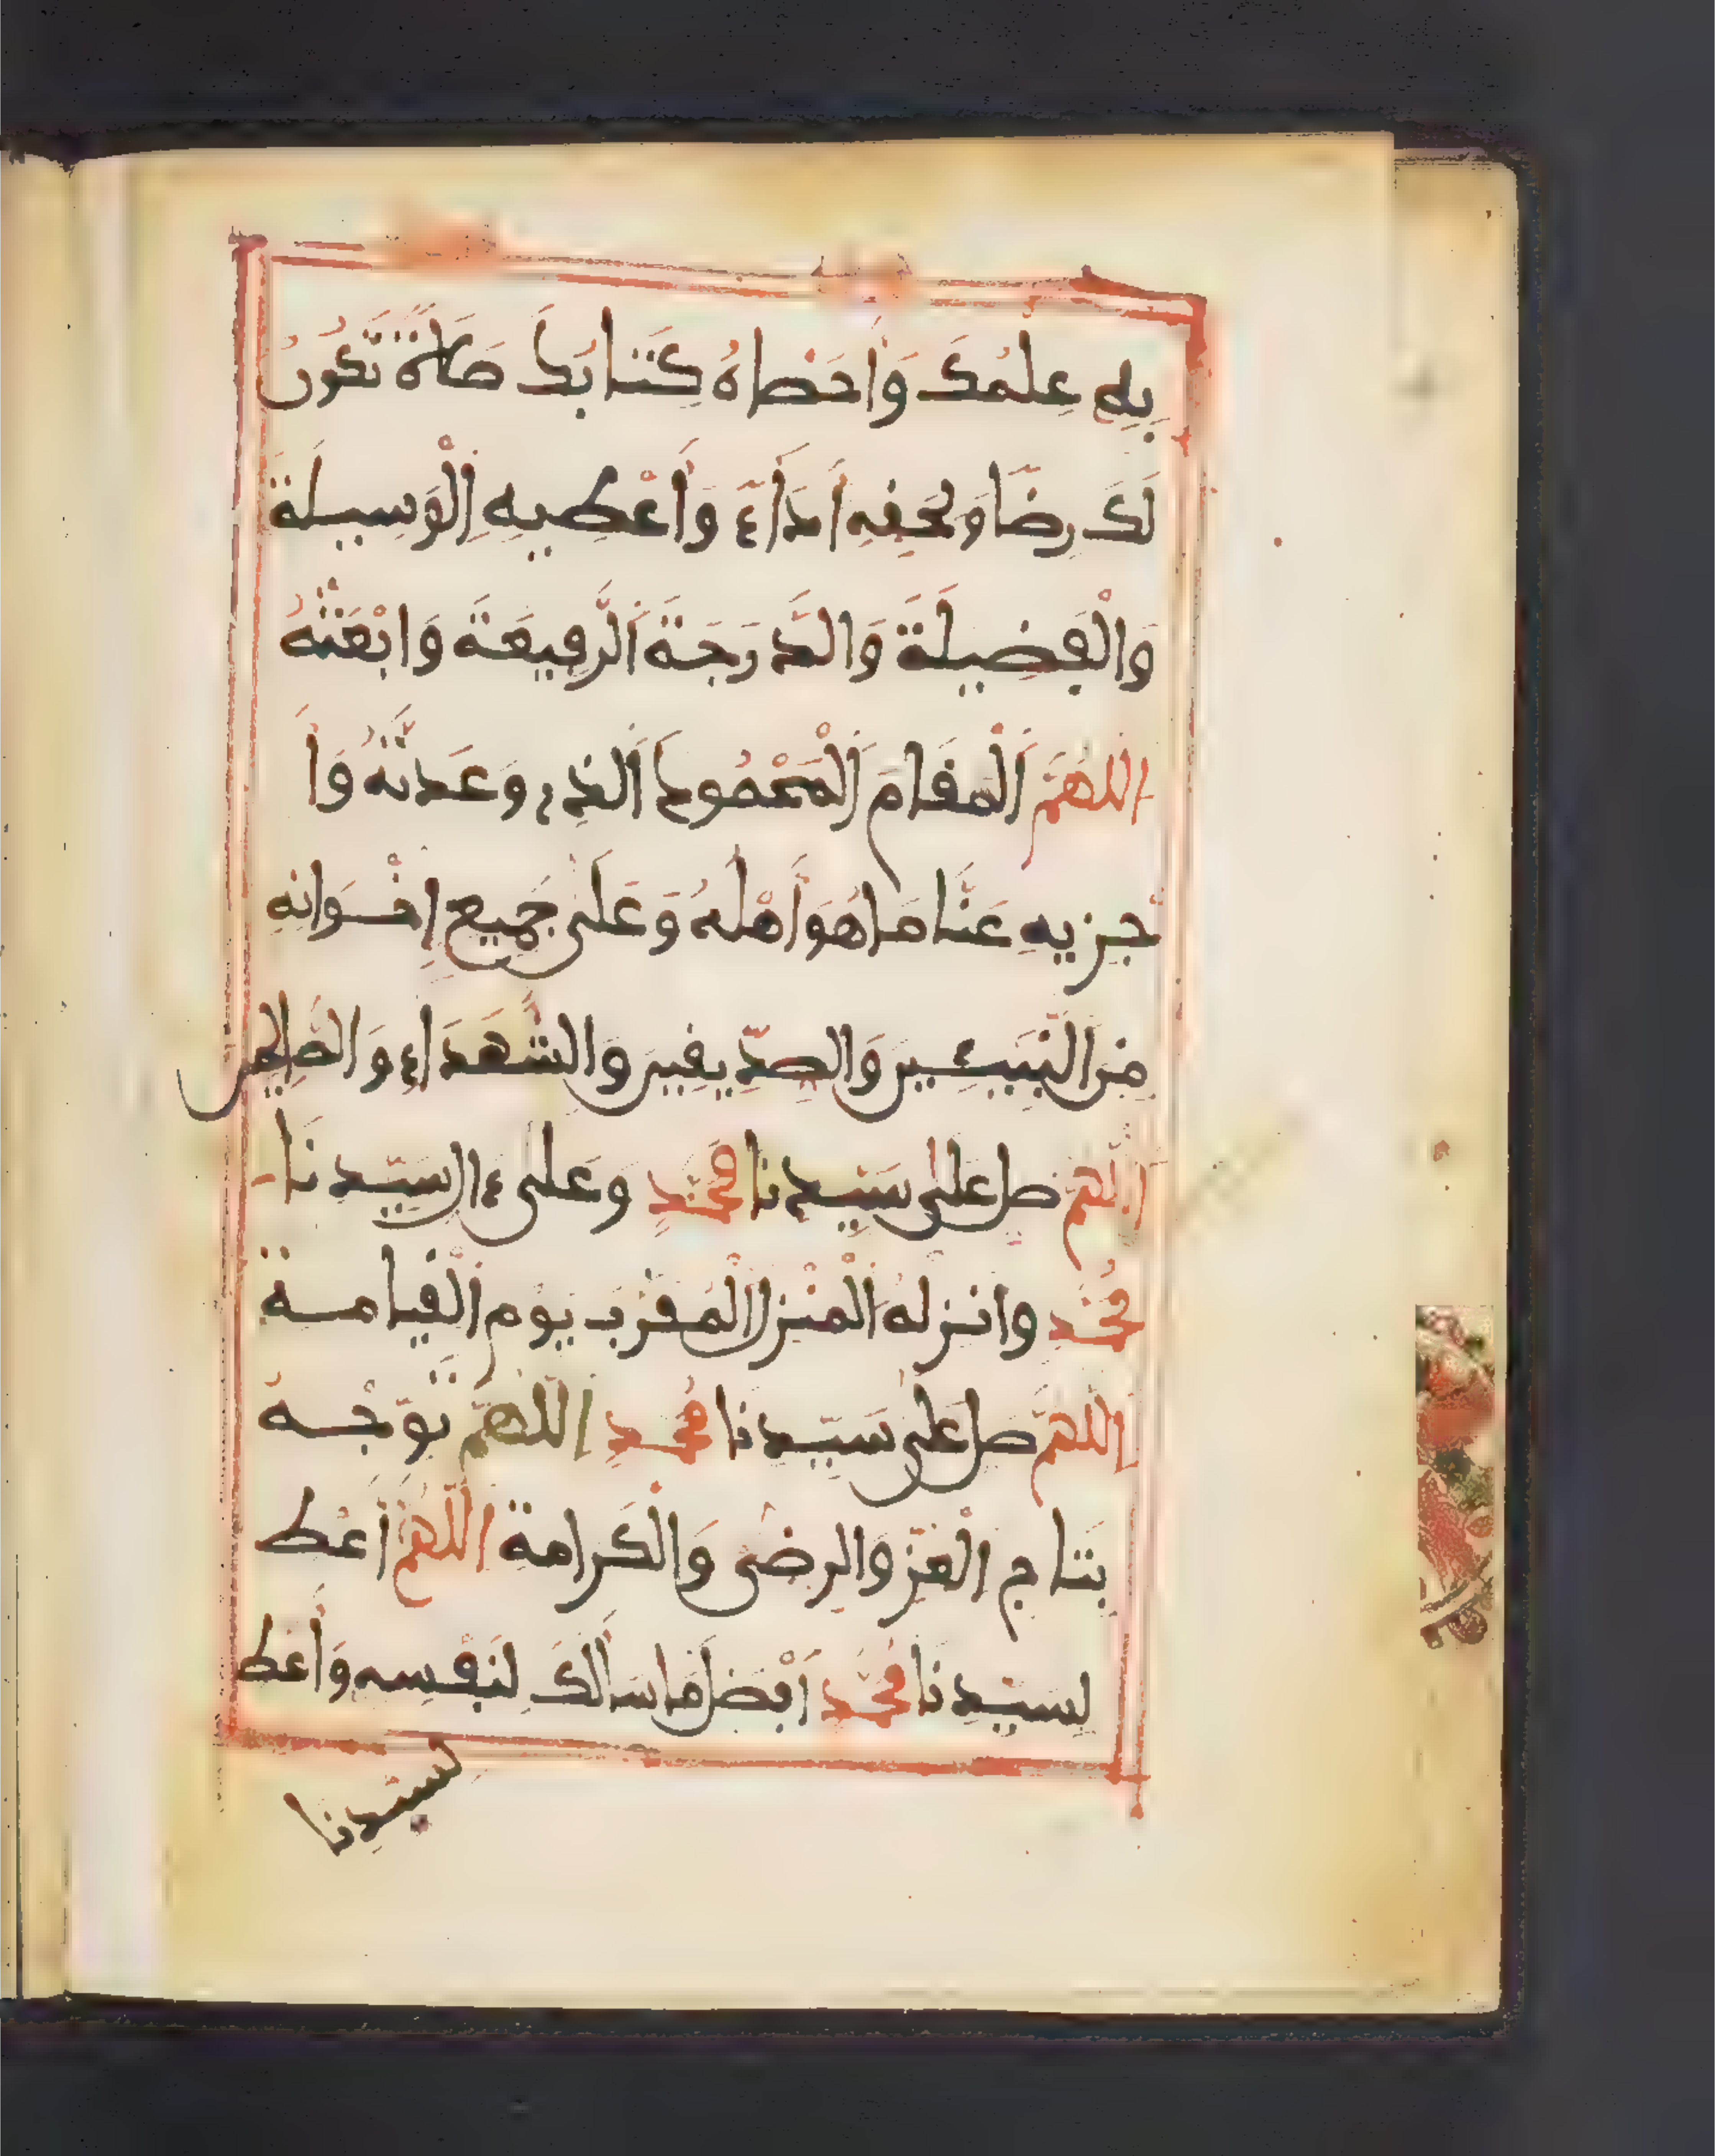 بِهِ عِلْمُكَ وَأَحْصَاهُ كِتَابُكَ صَلَاةً تَكُونُ
لَكَ رِضًا وَلِحَقِّهِ أَدَاءً وَأَعْطِيهِ الْوَسِيلَةَ
وَالْفَضِيلَةَ وَالدَّرَجَةَ الرَّفِيعَةَ وَابْعَثْهُ
اللَّهُمَّ الْمَقَامَ الْمَحْمُودَ الَّذِي وَعَدْتَّهُ وَا
جْزِيهِ عَنَّا مَا هُوَ أَهْلُهُ وَعَلَى جَمِيعِ إِخْوَانِهِ
مِنَ النَّبِيئِينَ وَالصِّدِّيقِينَ وَالشُّهَدَاءِ وَالصَّالِحِينَ
اللهم صل على سَيِّدِنَا مُحَمَّدٍ وَعَلَى ءال سَيِّدِنَا
مُحَمَّدٍ وانزله الْمنْزل الْمُقَرَّبَ يَوْم الْقِيَامة
اللهم صل على سَيِّدِنَا مُحَمَّدٍ اللهم تَوِّجْه
بِتَاج الْعِزِّ وَالرِّضَى وَالْكَرَامة اللَّهُمَّ أَعْط
لِسَيِّدِنَا مُحَمَّد أَفْضَل مَا سَأَلَكَ لِنَفْسِه وَأَعْط
لسيدنا